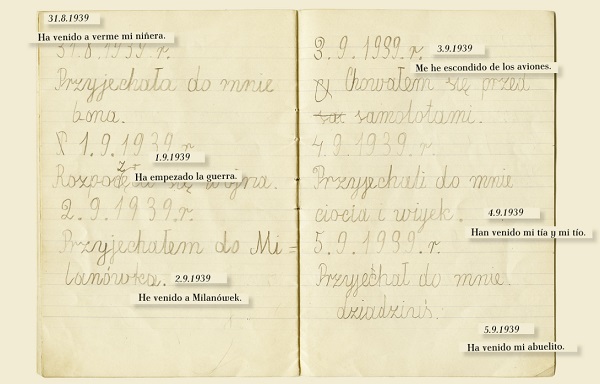 31.8.1939
Ha venido a verme mi niñera.
31.8.1939.r.
Przyjechała do mnie
bona.
1.9.1939.r.
1.9.1939
Ha empezado la guerra.
się wojna.
2.9.1939.r.
Przyjechałem do Mi=
lanówka.
2.9.1939
He venido a Milanówek.
3.9.1939.r.
3.9.1939
Me he escondido de los aviones.
Chowałem się przed
samolotami.
4.9.1939.r.
Przyjechali do mnie
ciocia i wujek.
4.9.1939
Han venido mi tía y mi tío.
5.9.1939.r.
Przyjechał do mnie
dziadziuś.
5.9.1939
Ha venido mi abuelito.